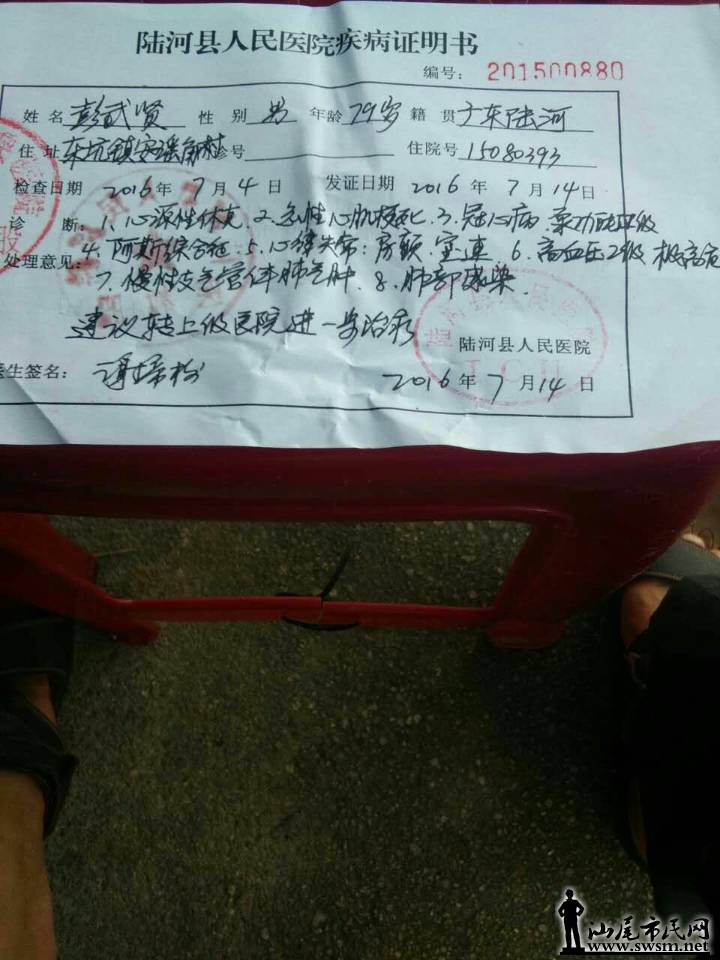 陆河县人民医院疾病证明书
编号: 201500880
姓名 彭武贤 性别 男 年龄 79岁 籍贯 广东陆河
住址 东坑镇安 村 诊号 住院号 15080393
检查日期 2016年7月4日 发证日期 2016年7月14日
诊断: 1、心源性休克 2、急性心肌梗死 3、冠心病 心功能IV级
处理意见: 4、阿斯综合征 5、心律失常: 房颤 室速 6、高血压2级 极高危
7、慢性支气管伴肺气肿 8、肺部感染
建议转上级医院进一步治疗
陆河县人民医院
医生签名:
2016年7月14日
汕尾市民网
www.swsm.net